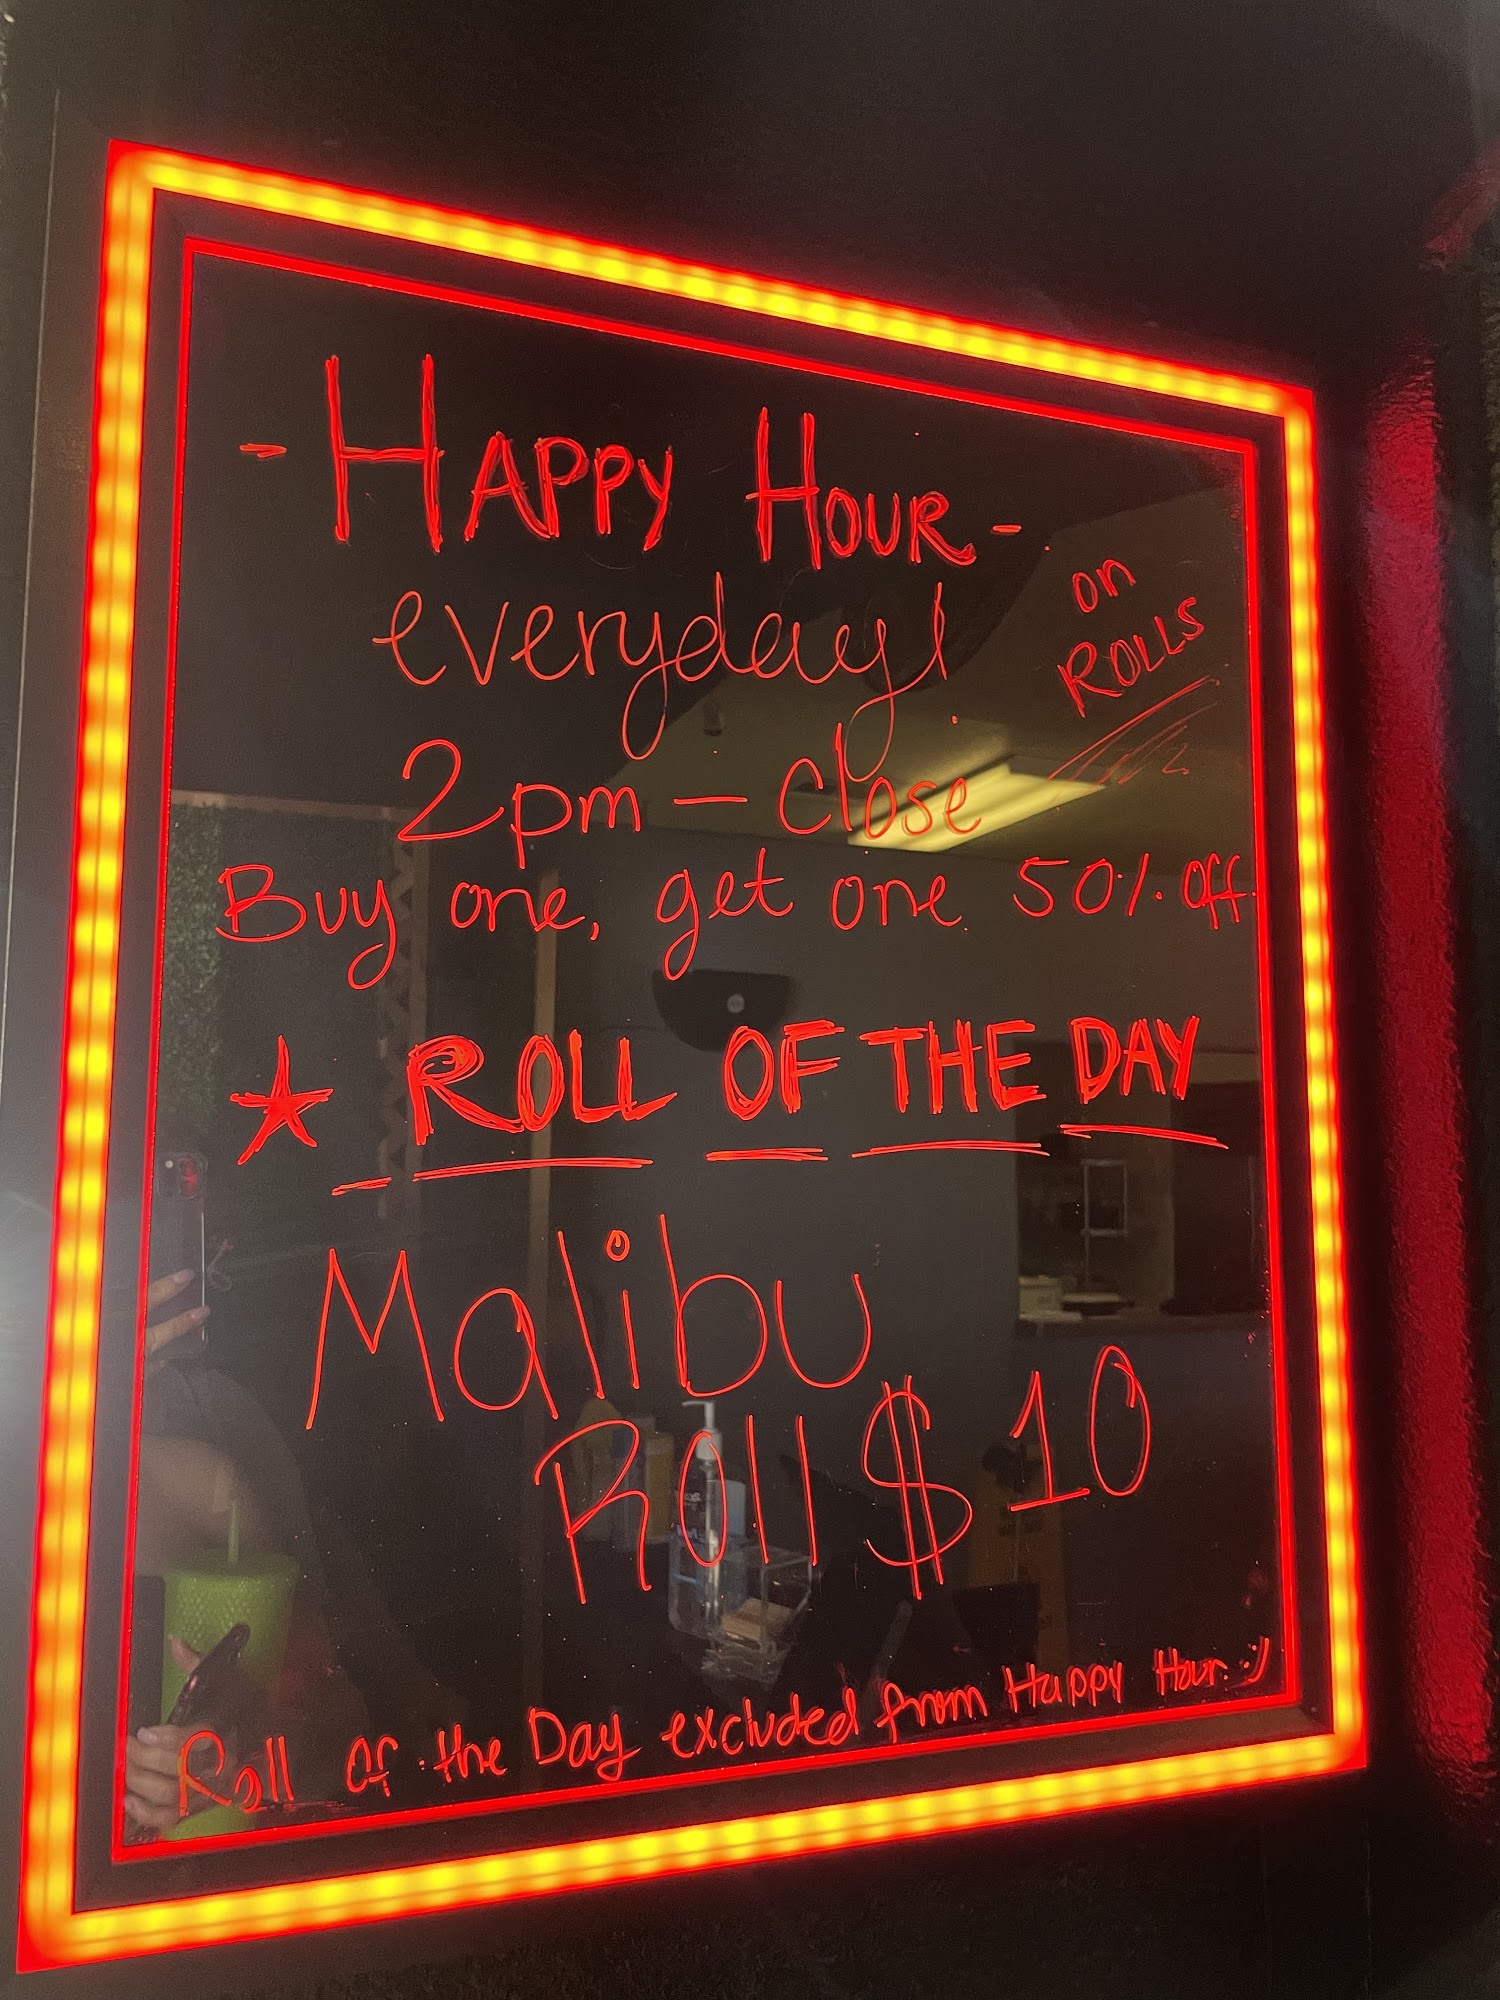 - HAPPY HOUR -
everyday!
on
ROLLS
2pm - close
Buy one, get one 50% off
★ ROLL OF THE DAY
Malibu
Roll $10
Roll of the Day excluded from Happy Hour. :)